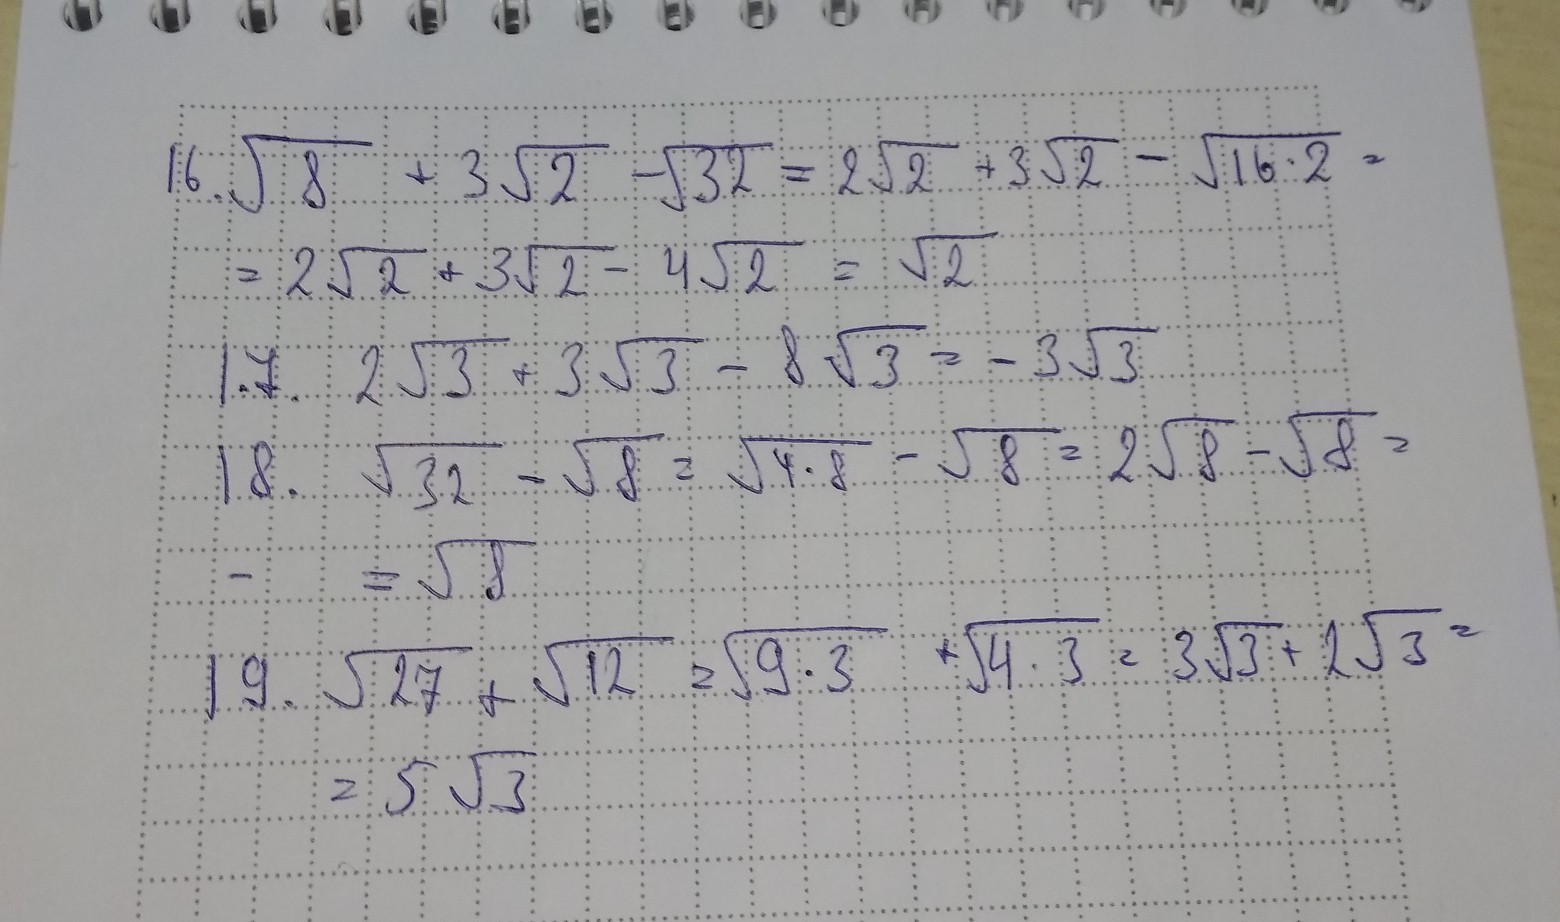 16. √8 + 3√2 - √32 = 2√2 + 3√2 - √16·2 =
= 2√2 + 3√2 - 4√2 = √2
17. 2√3 + 3√3 - 8√3 = -3√3
18. √32 - √8 = √4·8 - √8 = 2√8 - √8 =
- = √8
19. √27 + √12 = √9·3 + √4·3 = 3√3 + 2√3 =
= 5√3